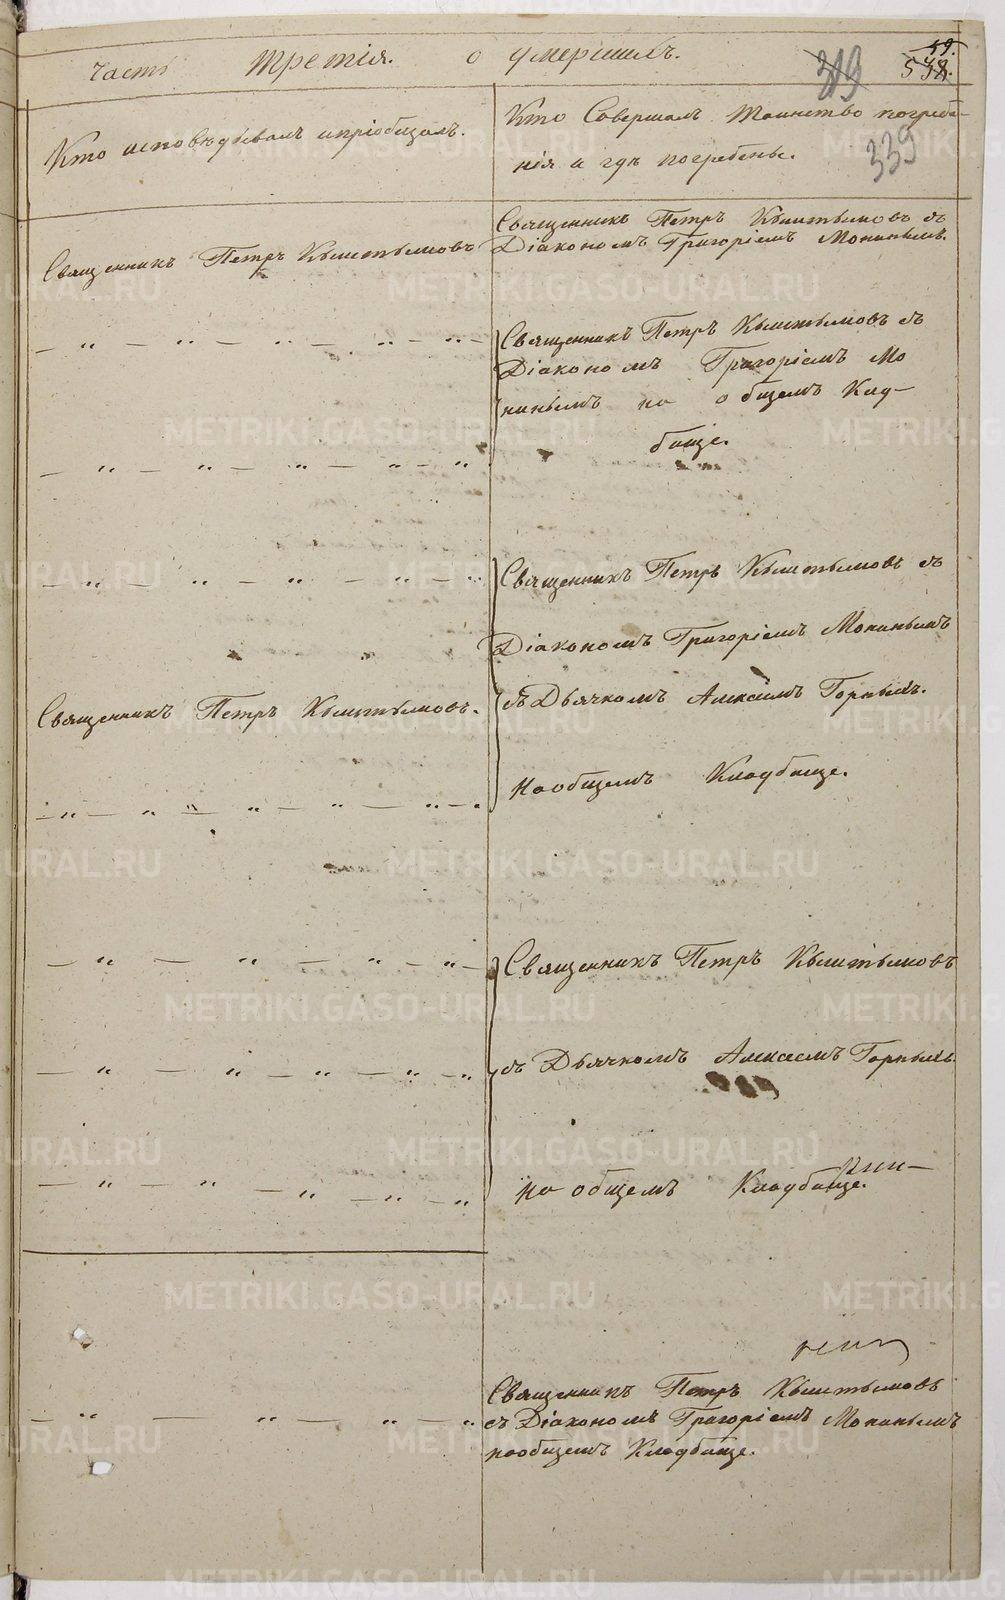 Часть третія. о умершихъ.
319
59.
538.
339
Кто исповѣдывалъ и пріобщалъ.
Кто совершалъ таинство погребе-
нія и гдѣ погребены.
Священникъ Петръ Кыштымовъ
Священникъ Петръ Кыштымовъ съ
Діакономъ Григоріемъ Мокинымъ.
— „ — „ — „ — „ — „ —
Священникъ Петръ Кыштымовъ съ
Діакономъ Григоріемъ Мо
кинымъ на общемъ Клад-
бище.
— „ — „ — „ — „ — „
— „ — „ — „ — „ — „
Священникъ Петръ Кыштымовъ съ
Діакономъ Григоріемъ Мокинымъ
Священникъ Петръ Кыштымовъ.
съ Дьячкомъ Алексѣемъ Горныхъ.
на общемъ Кладбище.
— „ — „ — „ — „ — „ —
— „ — „ — „ — „ —
Священникъ Петръ Кыштымовъ
— „ — „ — „ — „ — „
съ Дьячкомъ Алексеемъ Горныхъ.
— „ — „ — „ — „ — „
на общемъ Кладбище.
Священникъ Петръ Кыштымовъ
— „ — „ — „ — „
съ Діакономъ Григоріемъ Мокинымъ
на общемъ Кладбище.
METRIKI.GASO-URAL.RU